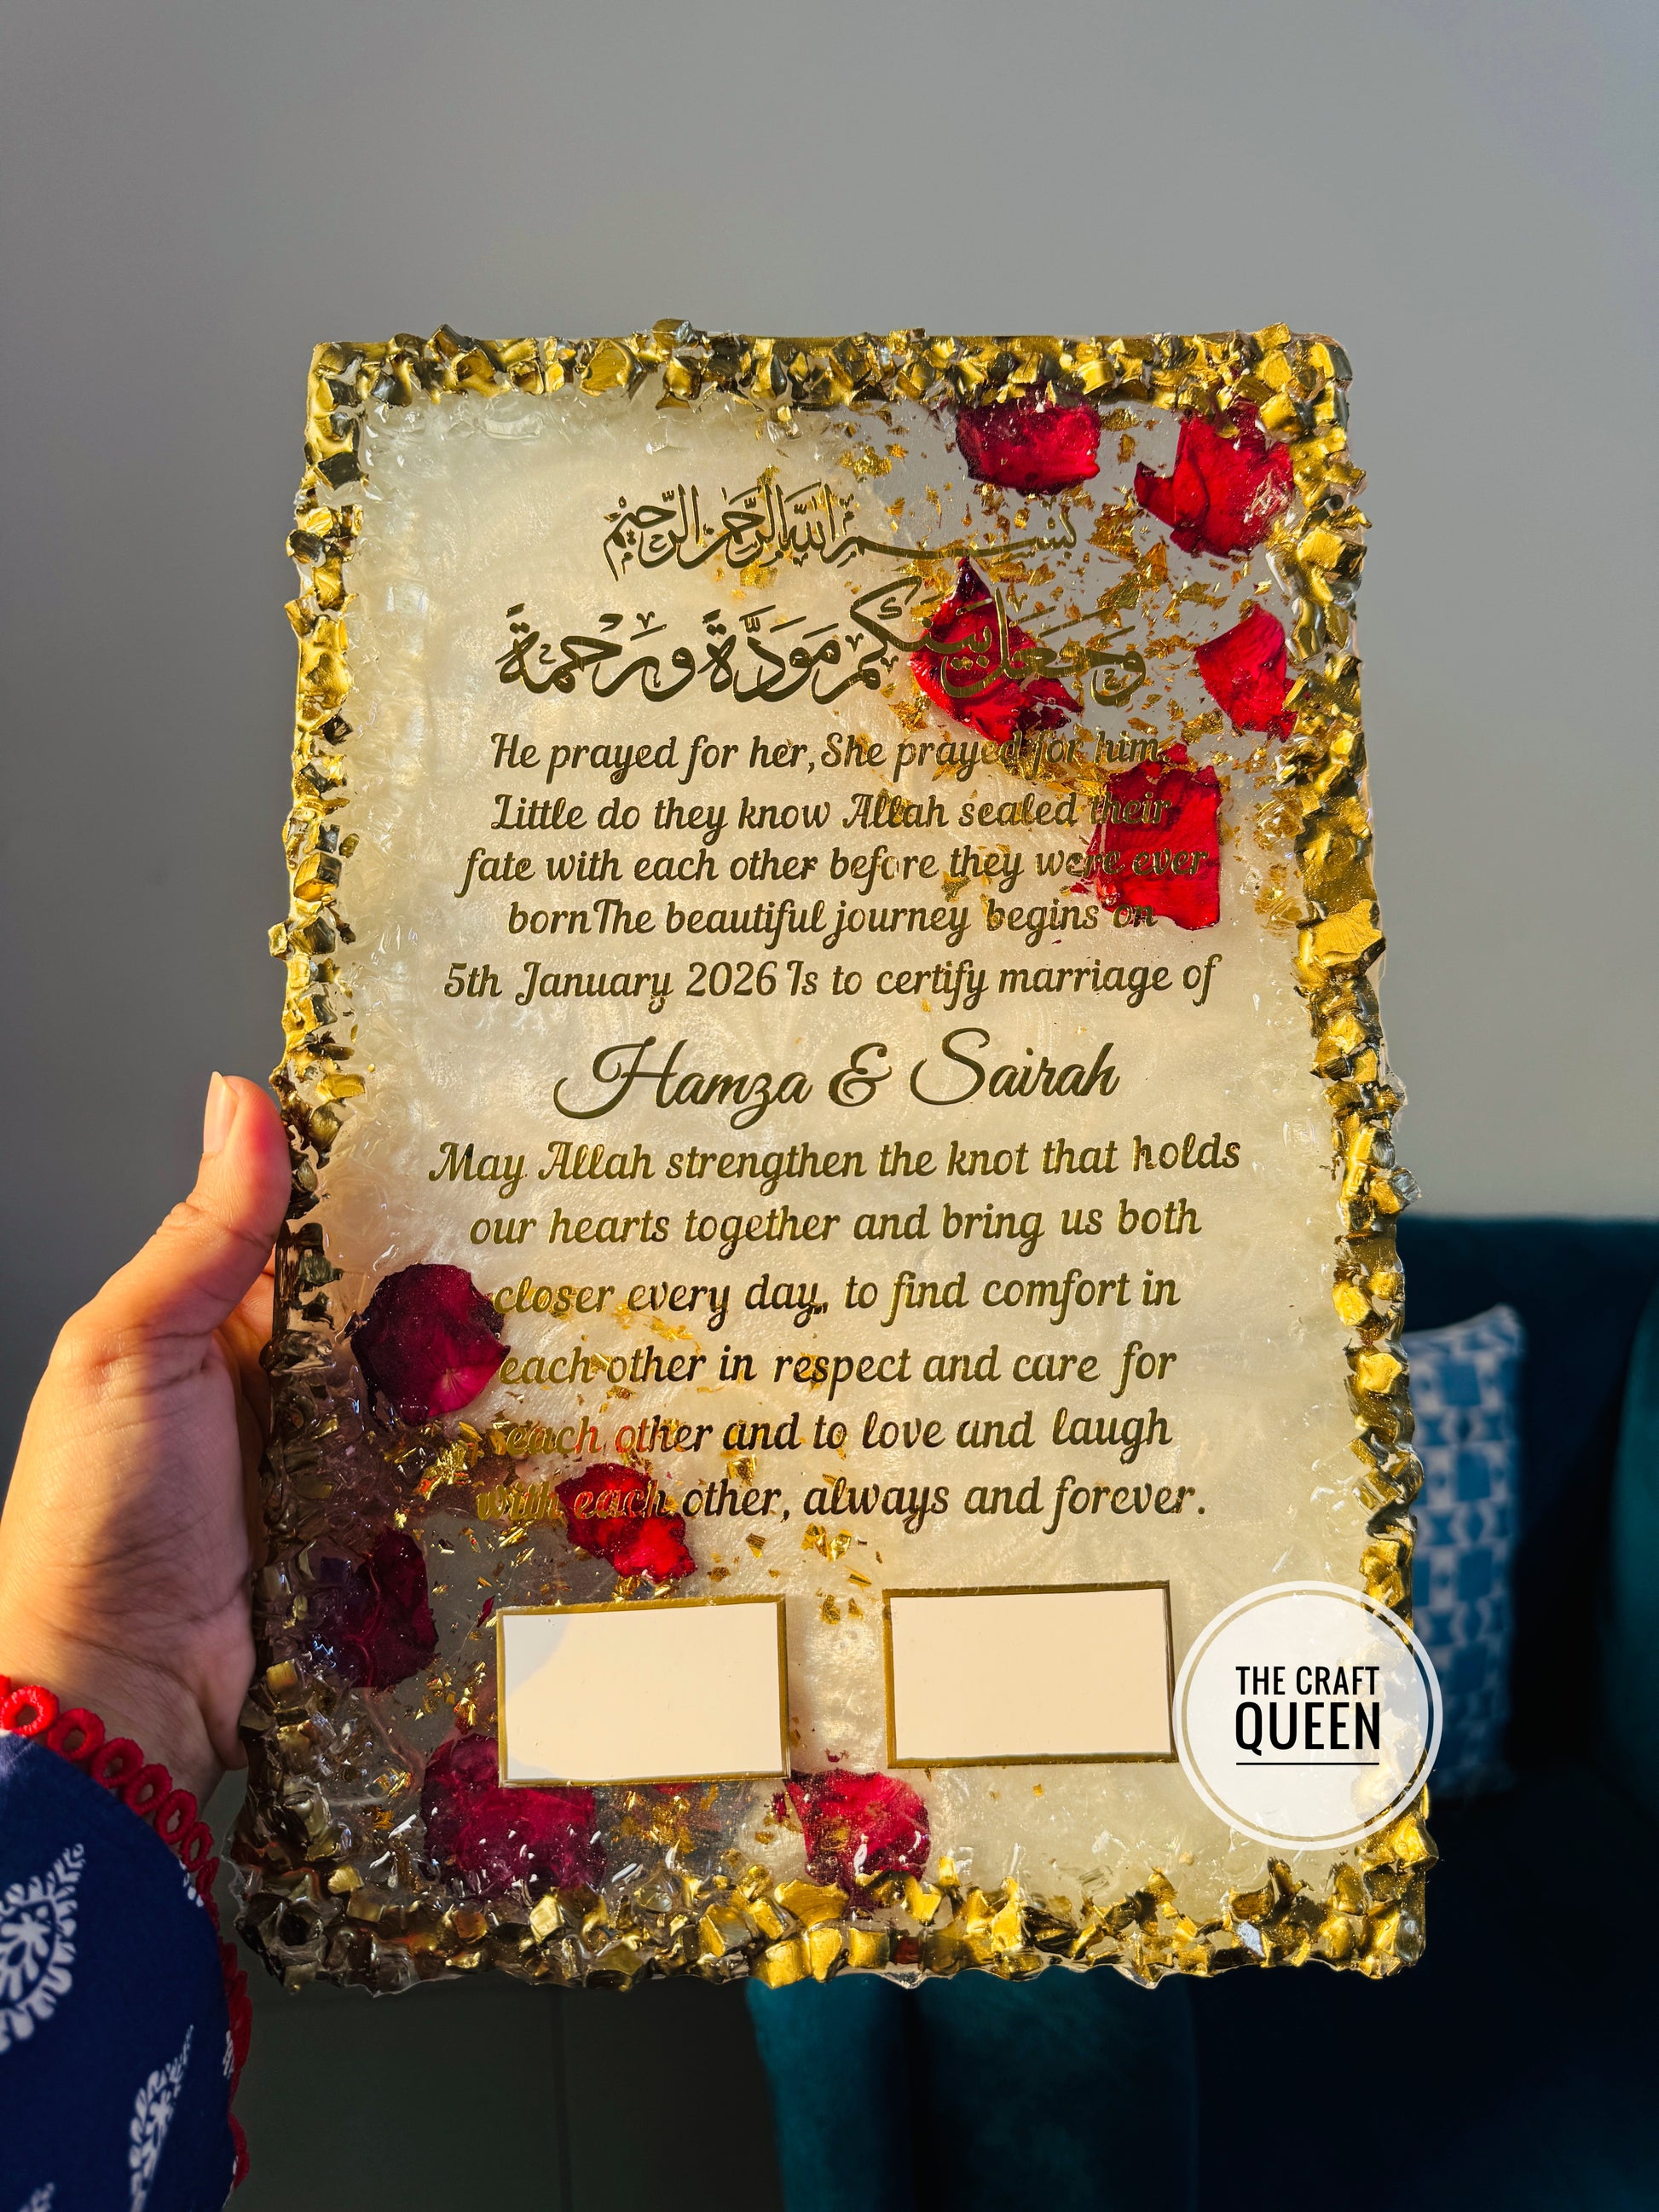 بسم الله الرحمن الرحيم
وَجَعَلَ بَيْنَكُم مَوَدَّةً وَرَحْمَةً
He prayed for her, She prayed for him.
Little do they know Allah sealed their
fate with each other before they were ever
bornThe beautiful journey begins on
5th January 2026 Is to certify marriage of
Hamza & Sairah
May Allah strengthen the knot that holds
our hearts together and bring us both
closer every day,, to find comfort in
each other in respect and care for
each other and to love and laugh
with each other, always and forever.
THE CRAFT
QUEEN